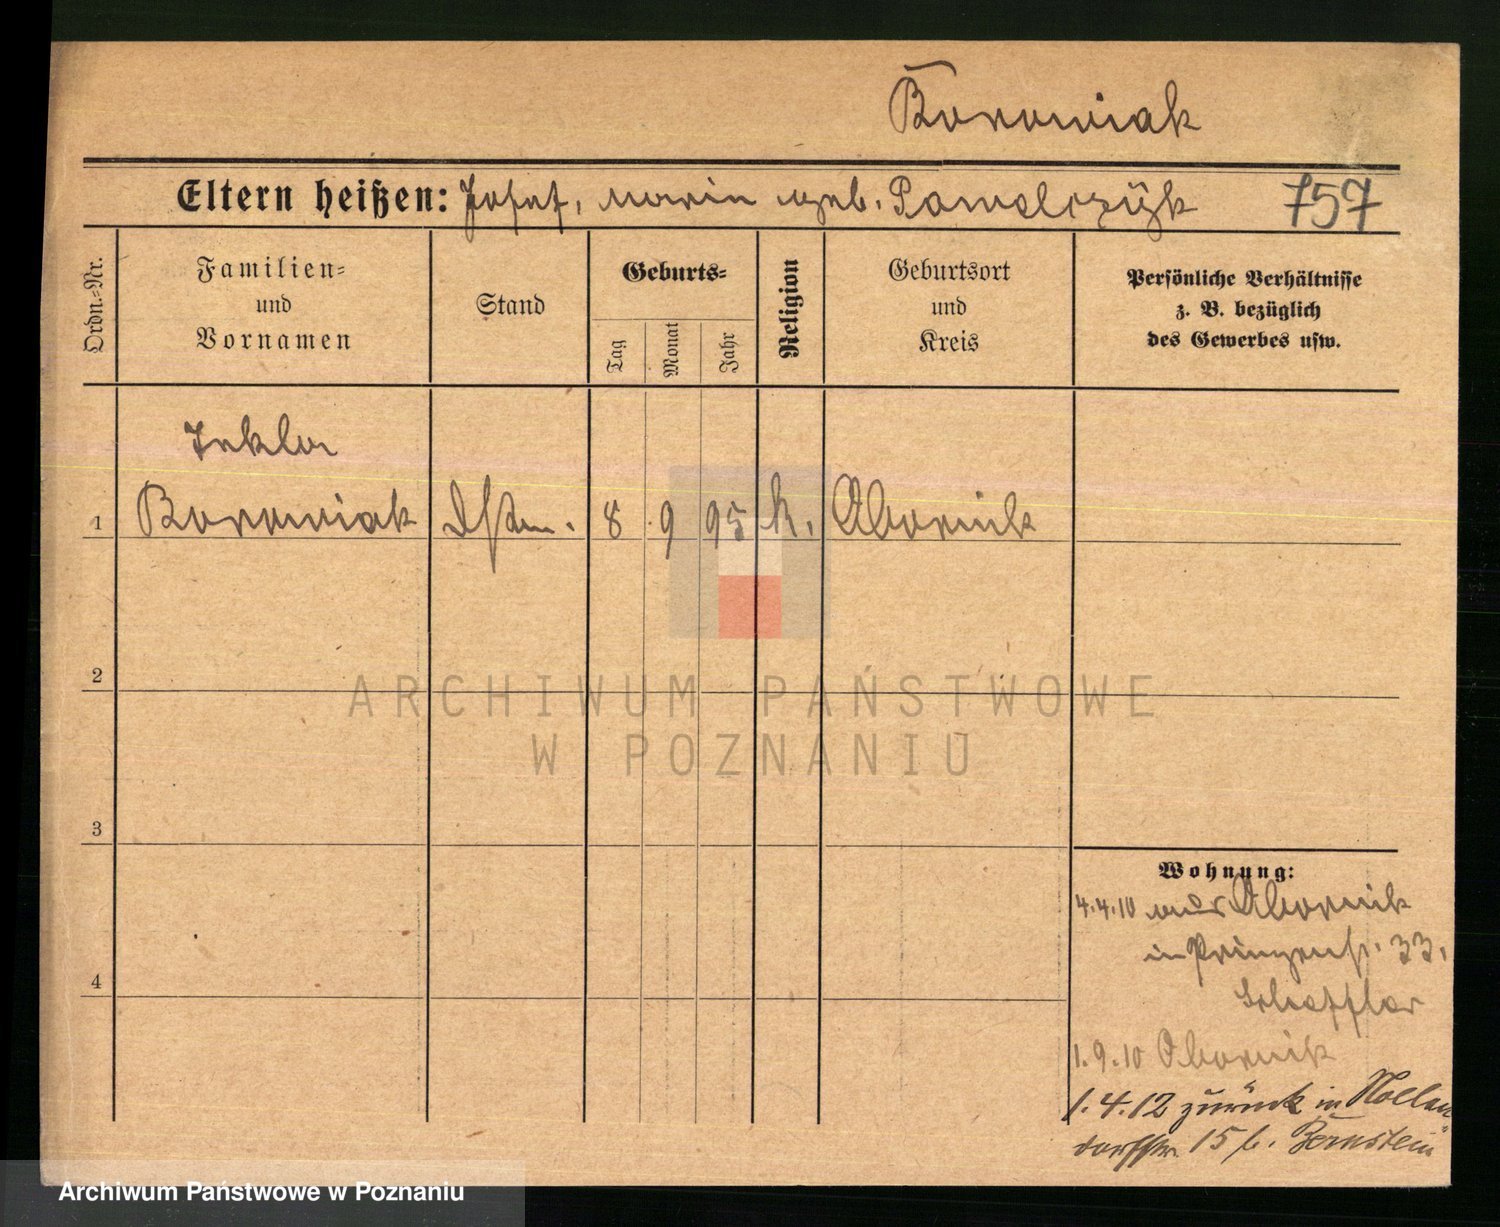 Borowiak
Eltern heißen: Josef, Maria geb. Pawelczÿk 757
Ordn.-Nr.
Familien-
und
Vornamen
Stand
Geburts-
Tag
Monat
Jahr
Religion
Geburtsort
und
Kreis
Persönliche Verhältnisse
z. B. bezüglich
des Gewerbes usw.
Tekla
1 Borowiak Dstm. 8 9 95 k. Obornik
2
3
4
Wohnung:
4.4.10 aus Obornik
in Prinzenst. 33,
1.9.10 Obornik
1.4.12 zurück in Nollen
dorfstr. 15 b. Bernstein
ARCHIWUM PAŃSTWOWE
W POZNANIU
Archiwum Państwowe w Poznaniu